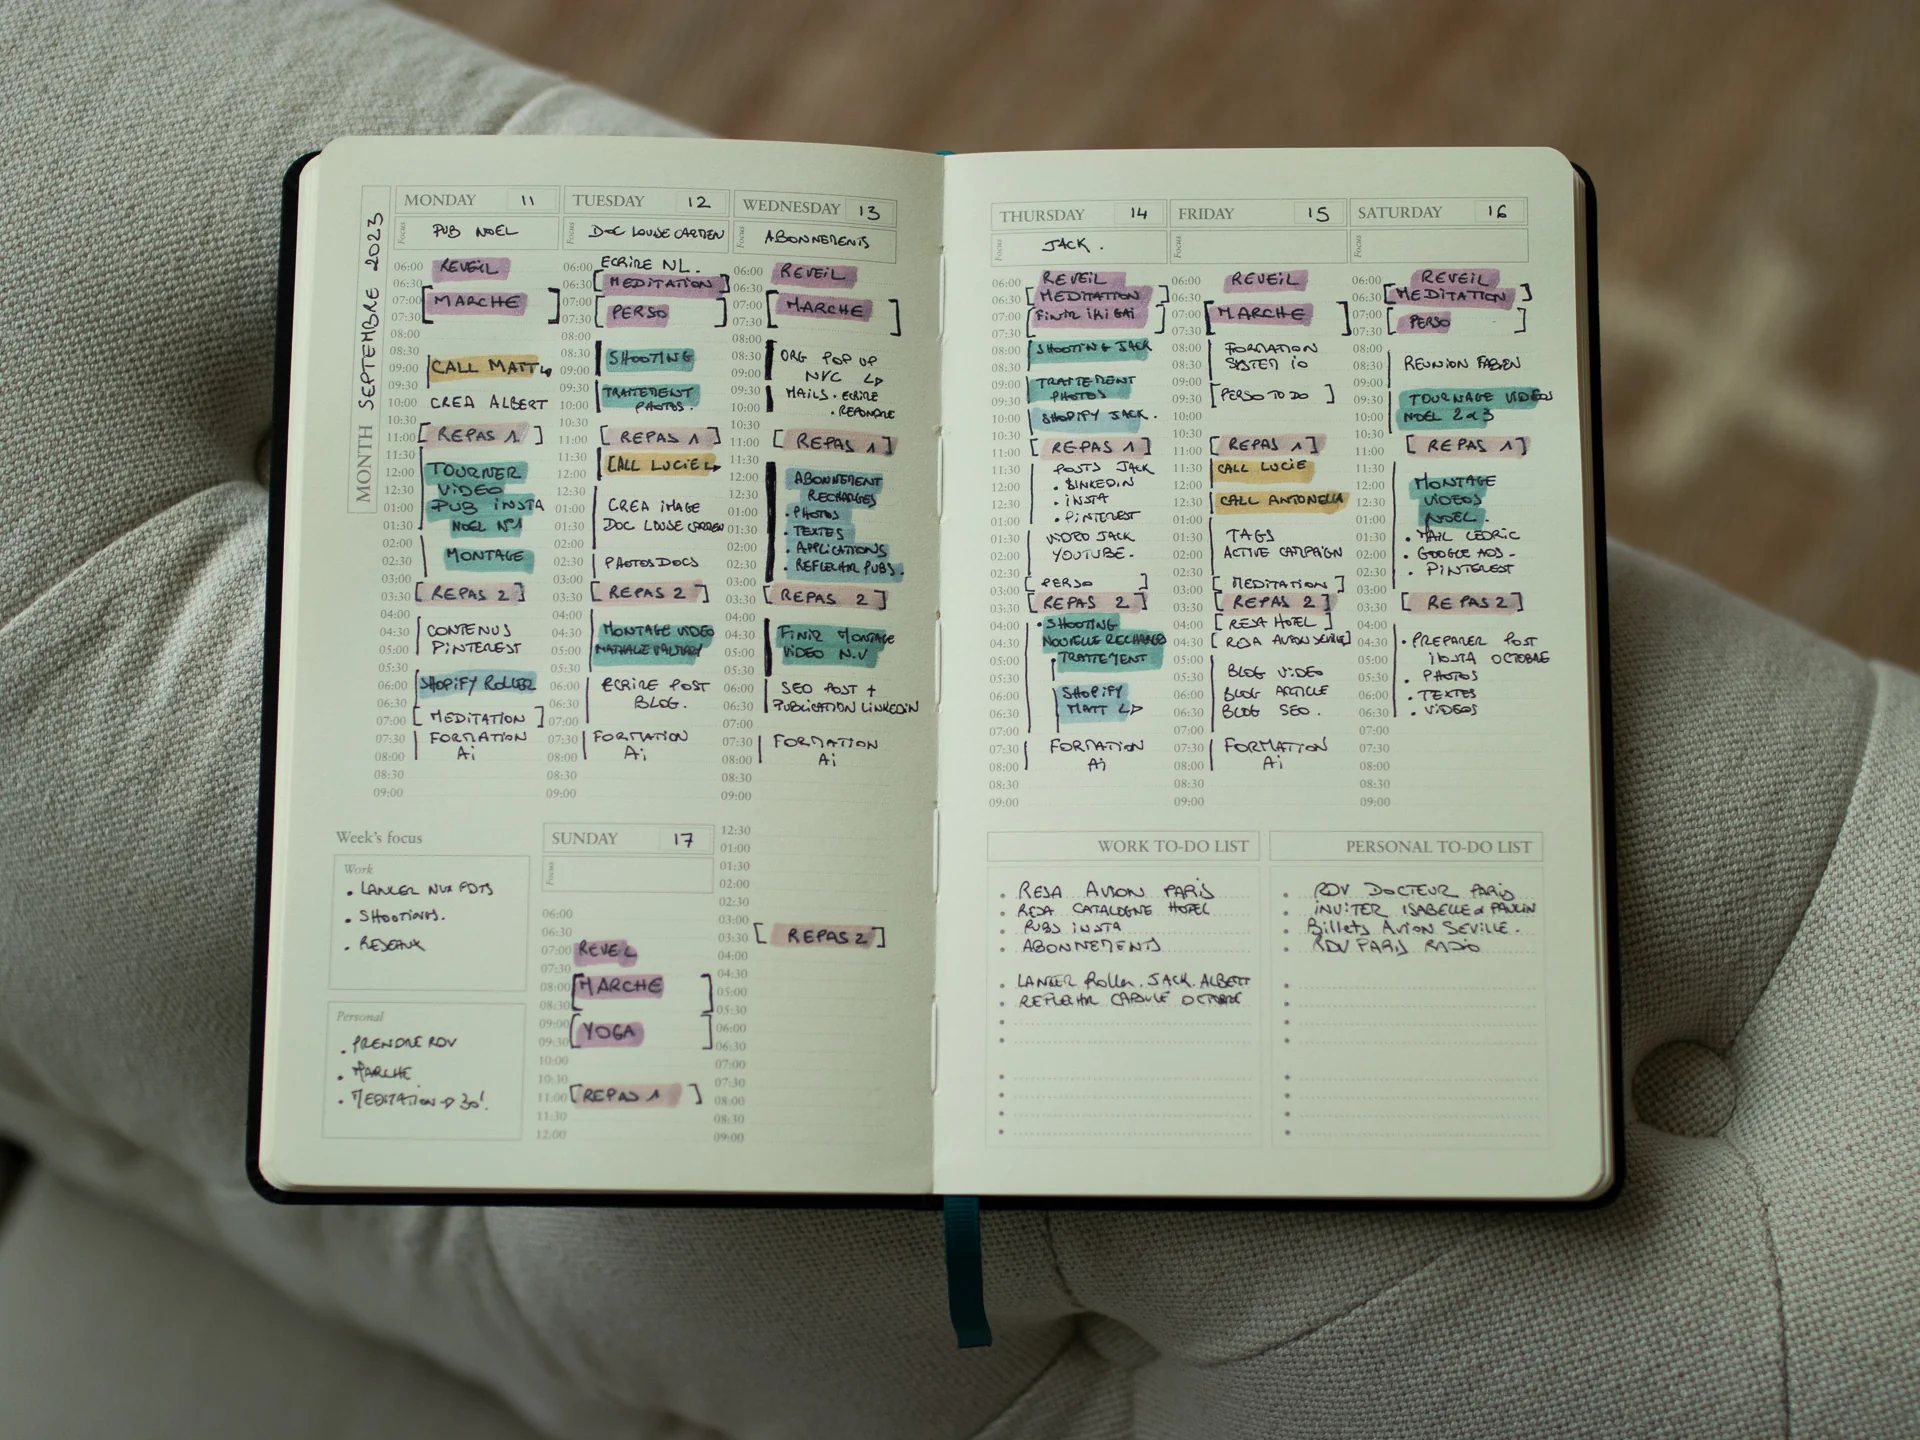 MONTH SEPTEMBRE 2023
MONDAY 11
Focus PUB NOEL
06:00 REVEIL
06:30
07:00 MARCHE
07:30
08:00
08:30
09:00 CALL MATT
09:30
10:00 CREA ALBERT
10:30
11:00 [ REPAS 1 ]
11:30
12:00 TOURNER
12:30 VIDEO
01:00 PUB INSTA
01:30 NOEL N°1
02:00
02:30 MONTAGE
03:00
03:30 [ REPAS 2 ]
04:00
04:30 CONTENUS
05:00 PINTEREST
05:30
06:00 SHOPIFY ROLLER
06:30
07:00 [ MEDITATION ]
07:30 FORMATION
08:00 Ai
08:30
09:00
TUESDAY 12
Focus DOC LOUISE CARMEN
06:00 ECRIRE NL.
06:30 [ MEDITATION ]
07:00
07:30 [ PERSO ]
08:00
08:30 SHOOTING
09:00
09:30 TRAITEMENT
10:00 PHOTOS.
10:30
11:00 [ REPAS 1 ]
11:30
12:00 CALL LUCIE
12:30
01:00 CREA IMAGE
01:30 DOC LOUISE CARMEN
02:00
02:30 PHOTOS DOCS
03:00
03:30 [ REPAS 2 ]
04:00
04:30 MONTAGE VIDEO
05:00 NATHALIE
05:30
06:00 ECRIRE POST
06:30 BLOG.
07:00
07:30 FORMATION
08:00 Ai
08:30
09:00
WEDNESDAY 13
Focus ABONNEMENTS
06:00 REVEIL
06:30
07:00 [ MARCHE ]
07:30
08:00
08:30 ORG POP UP
09:00 NYC
09:30 MAILS . ECRIRE
10:00 . REPONDRE
10:30
11:00 [ REPAS 1 ]
11:30
12:00 ABONNEMENT
12:30 RECHARGES
01:00 • PHOTOS
01:30 • TEXTES
02:00 • APPLICATIONS
02:30 • REFLECHIR PUBS.
03:00
03:30 [ REPAS 2 ]
04:00
04:30 FINIR MONTAGE
05:00 VIDEO N.V
05:30
06:00 SEO POST +
06:30 PUBLICATION LINKEDIN
07:00
07:30 FORMATION
08:00 Ai
08:30
09:00
Week's focus
Work
• LANCER NVX PDTS
• SHOOTINGS.
• RESEAUX
Personal
• PRENDRE RDV
• MARCHE
• MEDITATION → 30'.
SUNDAY 17
Focus
06:00
06:30
07:00 REVEIL
07:30
08:00 [ MARCHE ]
08:30
09:00 [ YOGA ]
09:30
10:00
10:30
11:00 [ REPAS 1 ]
11:30
12:00
12:30
01:00
01:30
02:00
02:30
03:00
03:30 [ REPAS 2 ]
04:00
04:30
05:00
05:30
06:00
06:30
07:00
07:30
08:00
08:30
09:00
THURSDAY 14
Focus JACK.
06:00 REVEIL
06:30 [ MEDITATION ]
07:00 FINIR IKIGAI
07:30
08:00 SHOOTING JACK
08:30
09:00 TRAITEMENT
09:30 PHOTOS
10:00 SHOPIFY JACK.
10:30
11:00 [ REPAS 1 ]
11:30 POSTS JACK
12:00 • LINKEDIN
12:30 • INSTA
01:00 • PINTEREST
01:30 VIDEO JACK
02:00 YOUTUBE.
02:30
03:00 [ PERSO ]
03:30 [ REPAS 2 ]
04:00 • SHOOTING
04:30 NOUVELLE RECHARGES
05:00 TRAITEMENT
05:30
06:00 SHOPIFY
06:30 MATT
07:00
07:30 FORMATION
08:00 Ai
08:30
09:00
FRIDAY 15
Focus
06:00 REVEIL
06:30
07:00 [ MARCHE ]
07:30
08:00 FORMATION
08:30 SYSTEM IO
09:00
09:30 [ PERSO TO DO ]
10:00
10:30
11:00 [ REPAS 1 ]
11:30 CALL LUCIE
12:00
12:30 CALL ANTONELLA
01:00
01:30 TAGS
02:00 ACTIVE CAMPAIGN
02:30
03:00 [ MEDITATION ]
03:30 [ REPAS 2 ]
04:00 [ RESA HOTEL ]
04:30 [ RESA AVION SEVILLE ]
05:00
05:30 BLOG VIDEO
06:00 BLOG ARTICLE
06:30 BLOG SEO.
07:00
07:30 FORMATION
08:00 Ai
08:30
09:00
SATURDAY 16
Focus
06:00 REVEIL
06:30 [ MEDITATION ]
07:00
07:30 [ PERSO ]
08:00
08:30 REUNION FABIEN
09:00
09:30 TOURNAGE VIDEOS
10:00 NOEL 2 et 3
10:30
11:00 [ REPAS 1 ]
11:30
12:00 MONTAGE
12:30 VIDEOS
01:00 NOEL.
01:30 • MAIL CEDRIC
02:00 • GOOGLE ADS
02:30 • PINTEREST
03:00
03:30 [ REPAS 2 ]
04:00
04:30 • PREPARER POST
05:00 INSTA OCTOBRE
05:30 • PHOTOS
06:00 • TEXTES
06:30 • VIDEOS
07:00
07:30
08:00
08:30
09:00
WORK TO-DO LIST
• RESA AVION PARIS
• RESA CATALOGNE HOTEL
• PUBS INSTA
• ABONNEMENTS
• LANCER Roller. JACK. ALBERT
• REFLECHIR CAPSULE OCTOBRE
PERSONAL TO-DO LIST
• RDV DOCTEUR PARIS
• INVITER ISABELLE et PAULIN
• Billets AVION SEVILLE.
• RDV PARIS RADIO